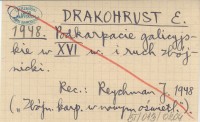 DRAKOHRUST E.
1948. Podkarpacie galicyj-
skie w XVI w. i ruch zbój-
nicki.
Rec.: Reychman J. 1948
("Zbójn. karp. w nowym oświetl.")